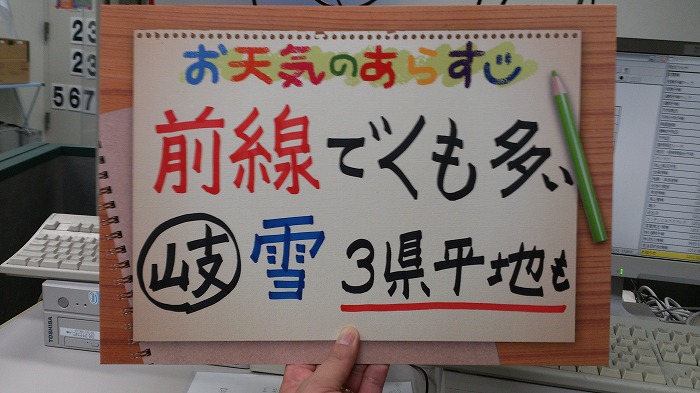 お天気のあらすじ
前線でくも多い
岐 雪 3県平地も
23
23
567
TOSHIBA